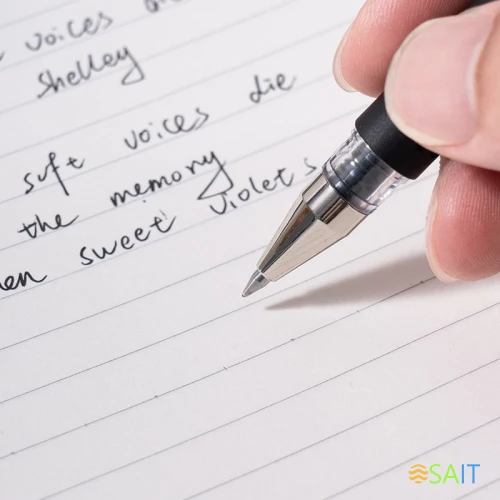 voices
Shelley
suft voices die
the memory
en sweet violets
OSAIT